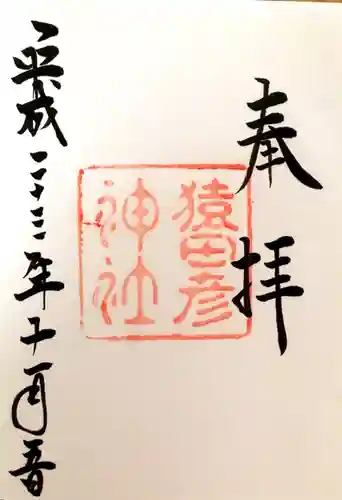 奉拝
猿田彦
神社
平成二十三年十一月